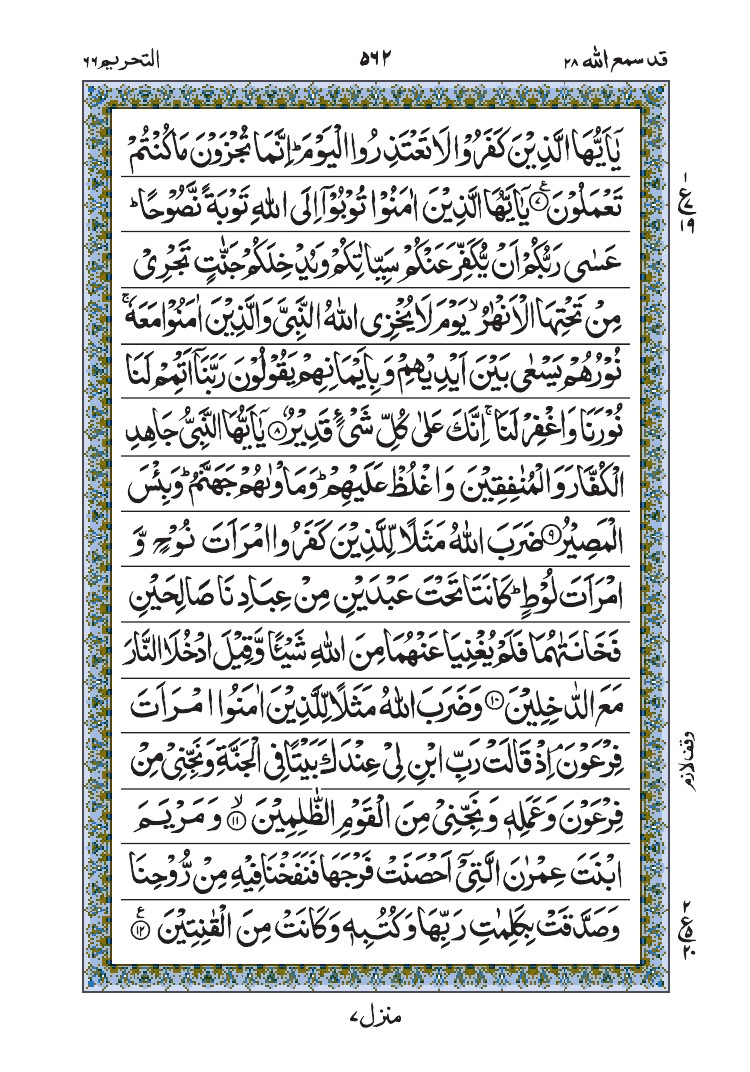 قد سمع الله ۲۸
۵۶۲
التحریم ۶۶
یٰۤاَیُّهَا الَّذِیْنَ كَفَرُوْا لَا تَعْتَذِرُوا الْیَوْمَ ؕ اِنَّمَا تُجْزَوْنَ مَا كُنْتُمْ
تَعْمَلُوْنَ ۷ یٰۤاَیُّهَا الَّذِیْنَ اٰمَنُوْا تُوْبُوْۤا اِلَى اللّٰهِ تَوْبَةً نَّصُوْحًا ؕ
عَسٰى رَبُّكُمْ اَنْ یُّكَفِّرَ عَنْكُمْ سَیِّاٰتِكُمْ وَیُدْخِلَكُمْ جَنّٰتٍ تَجْرِیْ
مِنْ تَحْتِهَا الْاَنْهٰرُ ۙ یَوْمَ لَا یُخْزِی اللّٰهُ النَّبِیَّ وَالَّذِیْنَ اٰمَنُوْا مَعَهٗ ۚ
نُوْرُهُمْ یَسْعٰى بَیْنَ اَیْدِیْهِمْ وَبِاَیْمَانِهِمْ یَقُوْلُوْنَ رَبَّنَاۤ اَتْمِمْ لَنَا
نُوْرَنَا وَاغْفِرْ لَنَا ۚ اِنَّكَ عَلٰى كُلِّ شَیْءٍ قَدِیْرٌ ۸ یٰۤاَیُّهَا النَّبِیُّ جَاهِدِ
الْكُفَّارَ وَالْمُنٰفِقِیْنَ وَاغْلُظْ عَلَیْهِمْ ؕ وَمَاْوٰىهُمْ جَهَنَّمُ ؕ وَبِئْسَ
الْمَصِیْرُ ۹ ضَرَبَ اللّٰهُ مَثَلًا لِّلَّذِیْنَ كَفَرُوا امْرَاَتَ نُوْحٍ وَّ
امْرَاَتَ لُوْطٍ ؕ كَانَتَا تَحْتَ عَبْدَیْنِ مِنْ عِبَادِنَا صَالِحَیْنِ
فَخَانَتٰهُمَا فَلَمْ یُغْنِیَا عَنْهُمَا مِنَ اللّٰهِ شَیْـًٔا وَّقِیْلَ ادْخُلَا النَّارَ
مَعَ الدّٰخِلِیْنَ ۱۰ وَضَرَبَ اللّٰهُ مَثَلًا لِّلَّذِیْنَ اٰمَنُوا امْرَاَتَ
فِرْعَوْنَ ۘ اِذْ قَالَتْ رَبِّ ابْنِ لِیْ عِنْدَكَ بَیْتًا فِی الْجَنَّةِ وَنَجِّنِیْ مِنْ
فِرْعَوْنَ وَعَمَلِهٖ وَنَجِّنِیْ مِنَ الْقَوْمِ الظّٰلِمِیْنَ ۱۱ ۙ وَمَرْیَمَ
ابْنَتَ عِمْرٰنَ الَّتِیْۤ اَحْصَنَتْ فَرْجَهَا فَنَفَخْنَا فِیْهِ مِنْ رُّوْحِنَا
وَصَدَّقَتْ بِكَلِمٰتِ رَبِّهَا وَكُتُبِهٖ وَكَانَتْ مِنَ الْقٰنِتِیْنَ ۱۲ ع
۱
ع ۷
۱۹
وقف لازم
۲
ع ۵
۲۰
منزل ۷